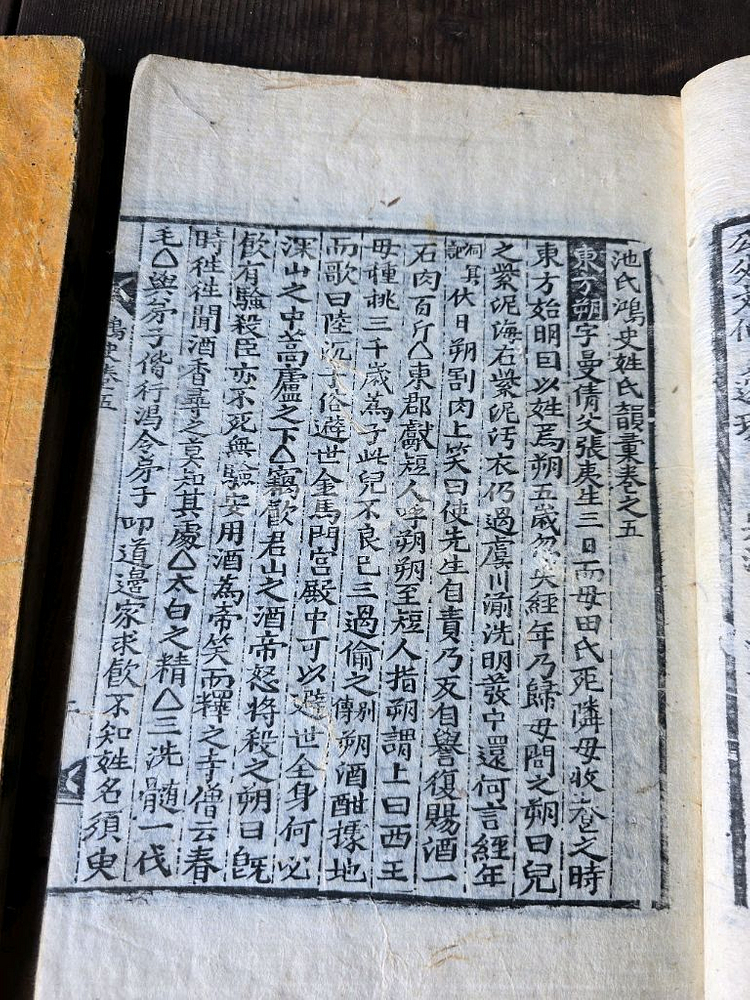 池氏鴻史姓氏韻彙卷之五
東方朔字曼倩父張夷生三日而母田氏死隣母收養之時
東方始明曰以姓焉朔五歲忽失經年乃歸母問之朔曰兒
之紫泥海右紫泥汚衣仍過虞川湔洗明發中還何言經年
洞冥記伏日朔割肉上笑曰使先生自責乃反自譽復賜酒一
石肉百斤△東郡獻短人呼朔朔至短人指朔謂上曰西王
母種桃三千歲爲子此兒不良已三過偷之別傳朔酒酣據地
而歌曰陸沉于俗避世金馬門宮殿中可以避世全身何必
深山之中蒿廬之下△竊飮君山之酒帝怒將殺之朔曰旣
飮有驗殺臣亦不死無驗安用酒爲帝笑而釋之寺僧云春
時徃徃聞酒香尋之莫知其處△太白之精△三洗髓一伐
毛△與弟子偕行渴令弟子叩道邊家求飮不知姓名須臾
鴻史卷五